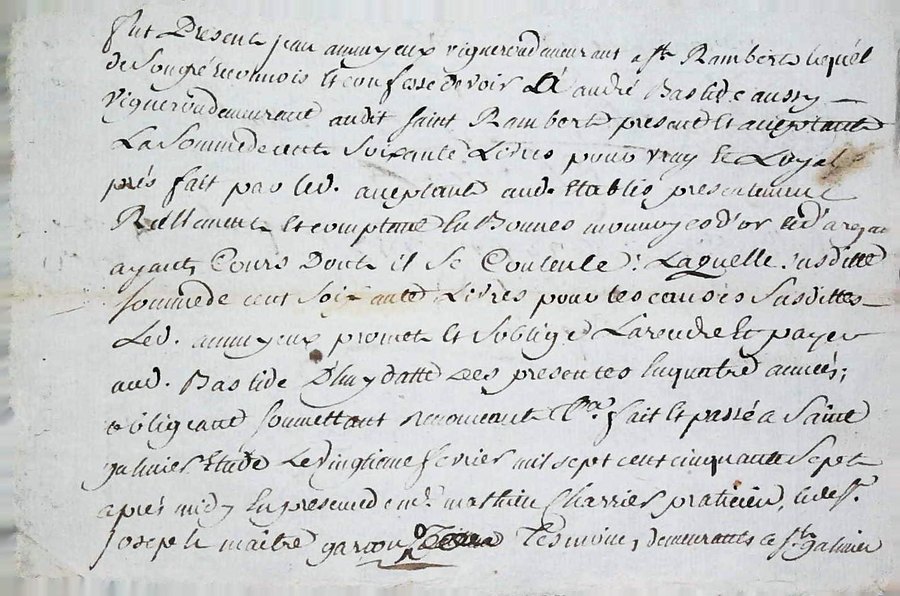 fut Present jean ammyeux vigneron demeurant a St. Rambert lequel
de Son gré reconnois Et confesse devoir A andré Bastide aussy
vigneron demeurant audit Saint Rambert present Et acceptant
La Somme de cent Soixante Livres pour vray Et Loyal
prés fait par led. acceptant aud. Etablis presentement
Reellement Et comptant En Bonnes monnoyes d'or Et d'argen
ayant Cours Dont il Se Contente : Laquelle Susditte
Somme de cent Soixante Livres pour les causes Susdittes
Led. ammyeux promet Et Soblige La rendre Et payer
aud. Bastide D'huy datte des presentes En quatre années ;
obligeant Soumettant Renonceant Ca. fait Et passé a Saint
galmier Etude Le vingtieme fevrier mil Sept cent cinquante Sept
aprés midy En presence de me. mathieu Charries praticien, Et de Sr.
Joseph maitre garcon Tesmoins, demeurants a St. galmier